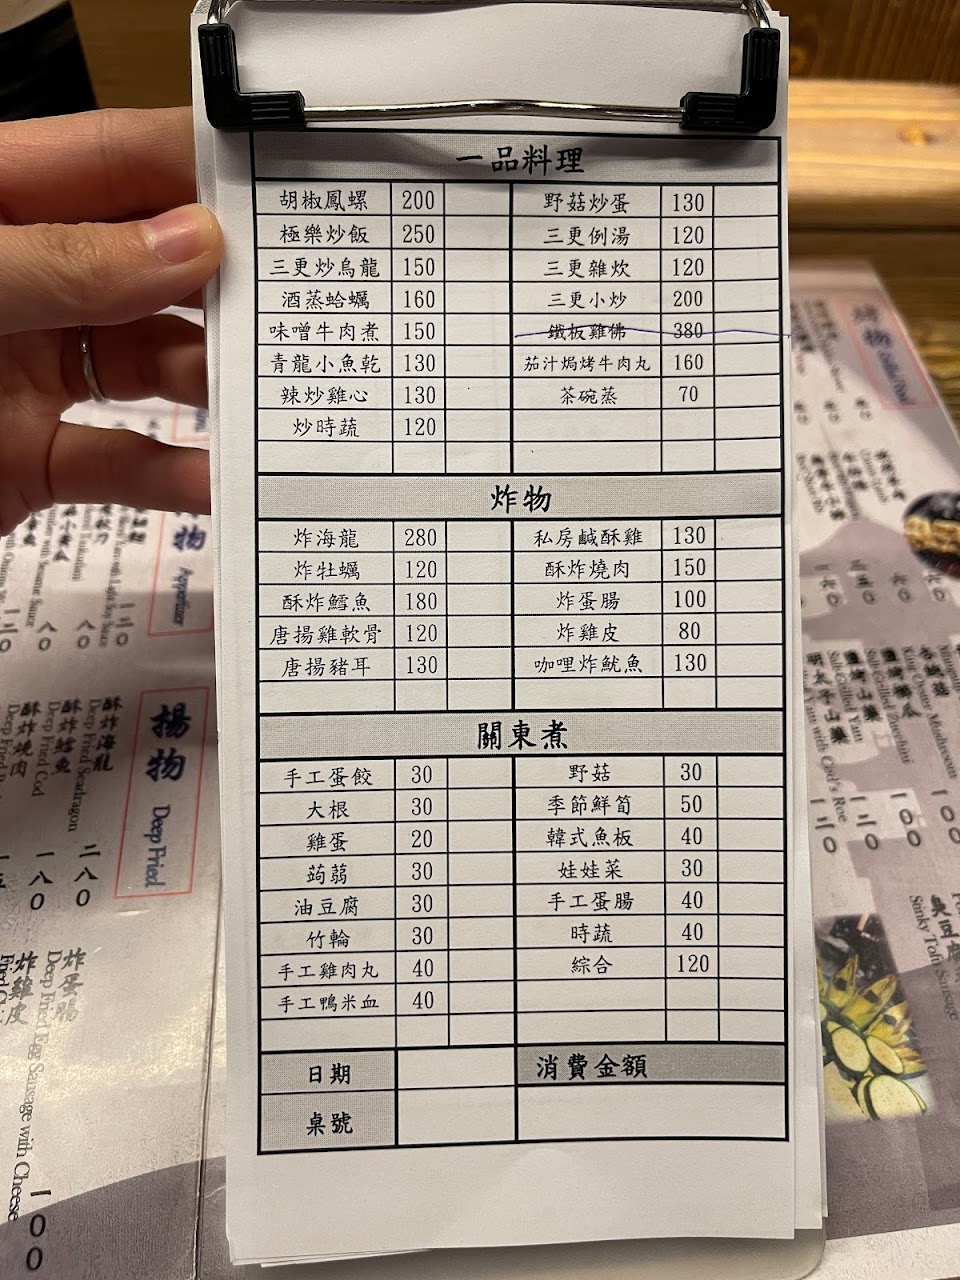 一品料理
胡椒鳳螺 200 野菇炒蛋 130
極樂炒飯 250 三更例湯 120
三更炒烏龍 150 三更雜炊 120
酒蒸蛤蠣 160 三更小炒 200
味噌牛肉煮 150 鐵板雞佛 380
青龍小魚乾 130 茄汁焗烤牛肉丸 160
辣炒雞心 130 茶碗蒸 70
炒時蔬 120
炸物
炸海龍 280 私房鹹酥雞 130
炸牡蠣 120 酥炸燒肉 150
酥炸鱈魚 180 炸蛋腸 100
唐揚雞軟骨 120 炸雞皮 80
唐揚豬耳 130 咖哩炸魷魚 130
關東煮
手工蛋餃 30 野菇 30
大根 30 季節鮮筍 50
雞蛋 20 韓式魚板 40
蒟蒻 30 娃娃菜 30
油豆腐 30 手工蛋腸 40
竹輪 30 時蔬 40
手工雞肉丸 40 綜合 120
手工鴨米血 40
日期 消費金額
桌號
物 Appetizer
揚物 Deep Fried
酥炸海龍
Deep Fried Seadragon
二八0
酥炸鱈魚
Deep Fried Cod
一八0
酥炸燒肉
炸蛋腸
Deep Fried Egg Sausage with Cheese
一00
炸雞皮
杏鮑菇
King Oyster Mushroom
一00
鹽烤櫛瓜
Salt Grilled Zucchini
一00
鹽烤山藥
Salt Grilled Yam
一二0
明太子山藥
Yam with Cod's Roe
一三0
臭豆腐
Stinky Tofu Sausage